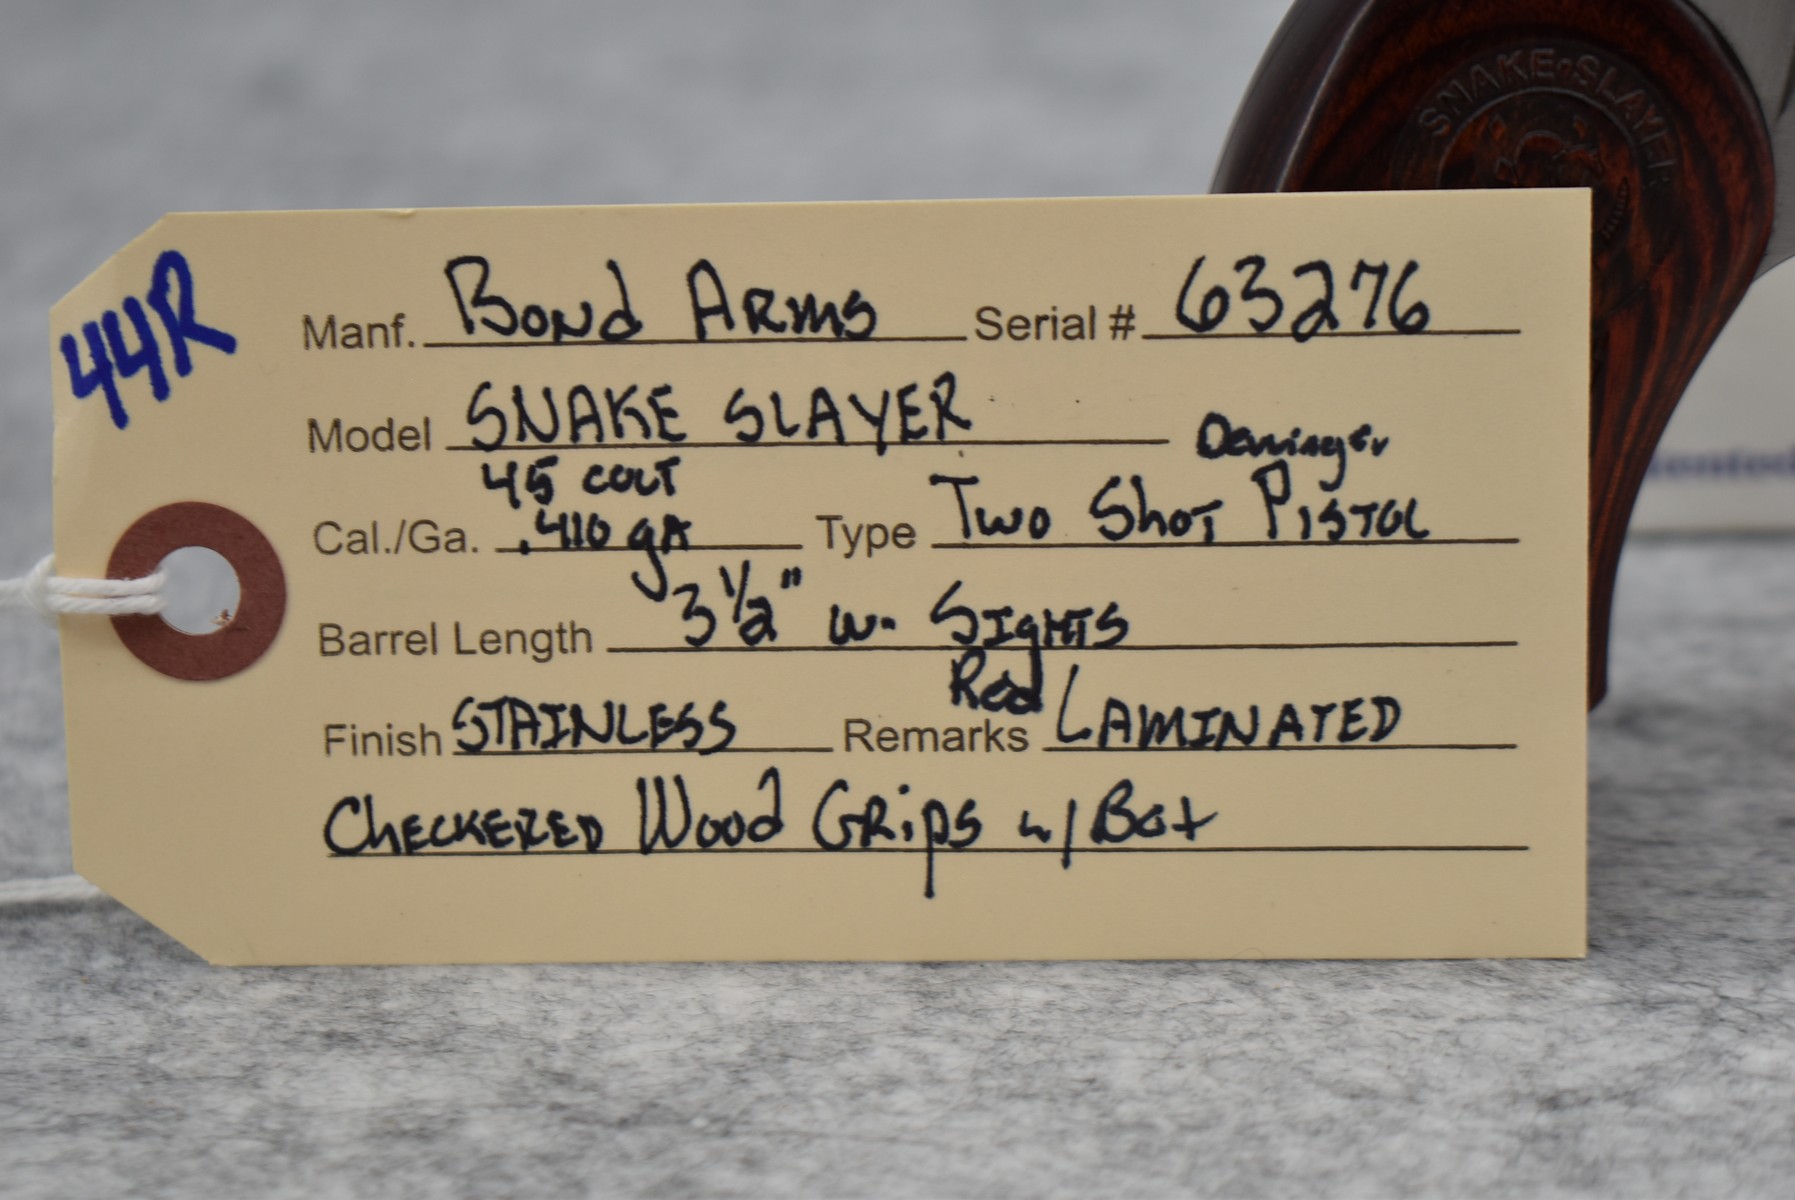 SNAKE SLAYER
44R
Manf. Bond Arms Serial # 63276
Model SNAKE SLAYER
Derringer
45 COLT
Cal./Ga. .410 gA Type Two Shot PISTOL
Barrel Length 3 1/2" w- SIGHTS
Red
Finish STAINLESS Remarks LAMINATED
CHECKERED Wood GRips w/ Box